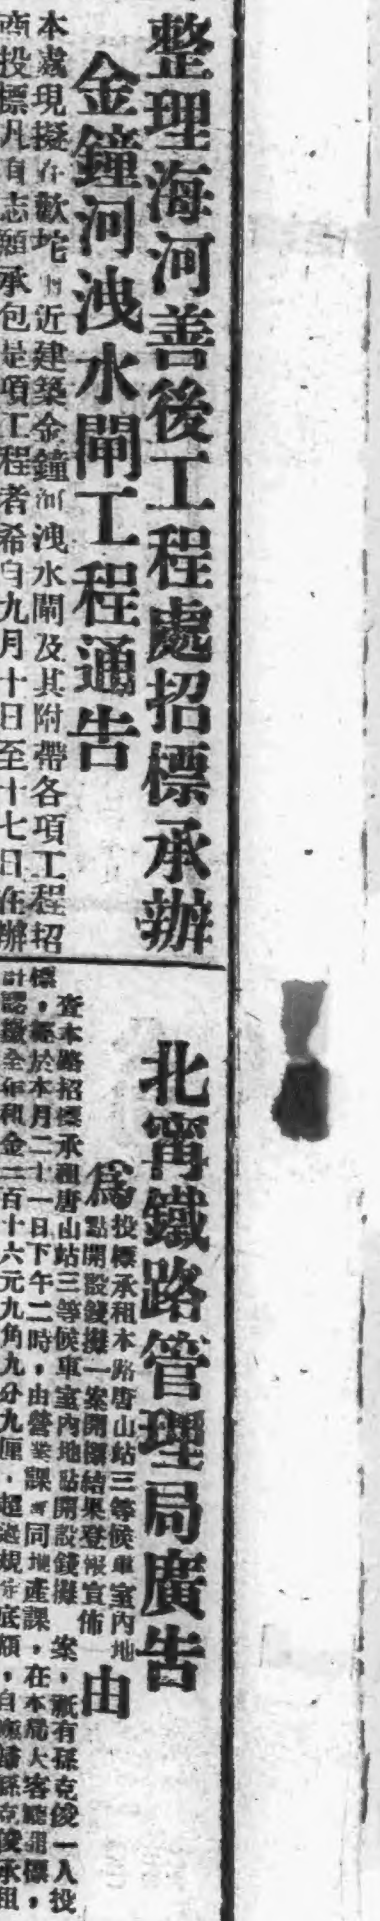 整理海河善後工程處招標承辦
金鐘河洩水閘工程通告
本處現擬在歡坨附近建築金鐘河洩水閘及其附帶各項工程招
商投標凡有志願承包是項工程者希自九月十日至十七日在辦
北甯鐵路管理局廣告
為投標承租本路唐山站三等候車室內地
點開設錢攤一案開標結果登報宣佈由
查本路招標承租唐山站三等候車室內地點開設錢攤 案，祇有孫克俊一人投
標，經於本月二十一日下午二時，由營業課會同地產課，在本局大客廳開標，
計認繳全年租金二百十六元九角九分九厘，超過規定底額，自應歸孫克俊承租